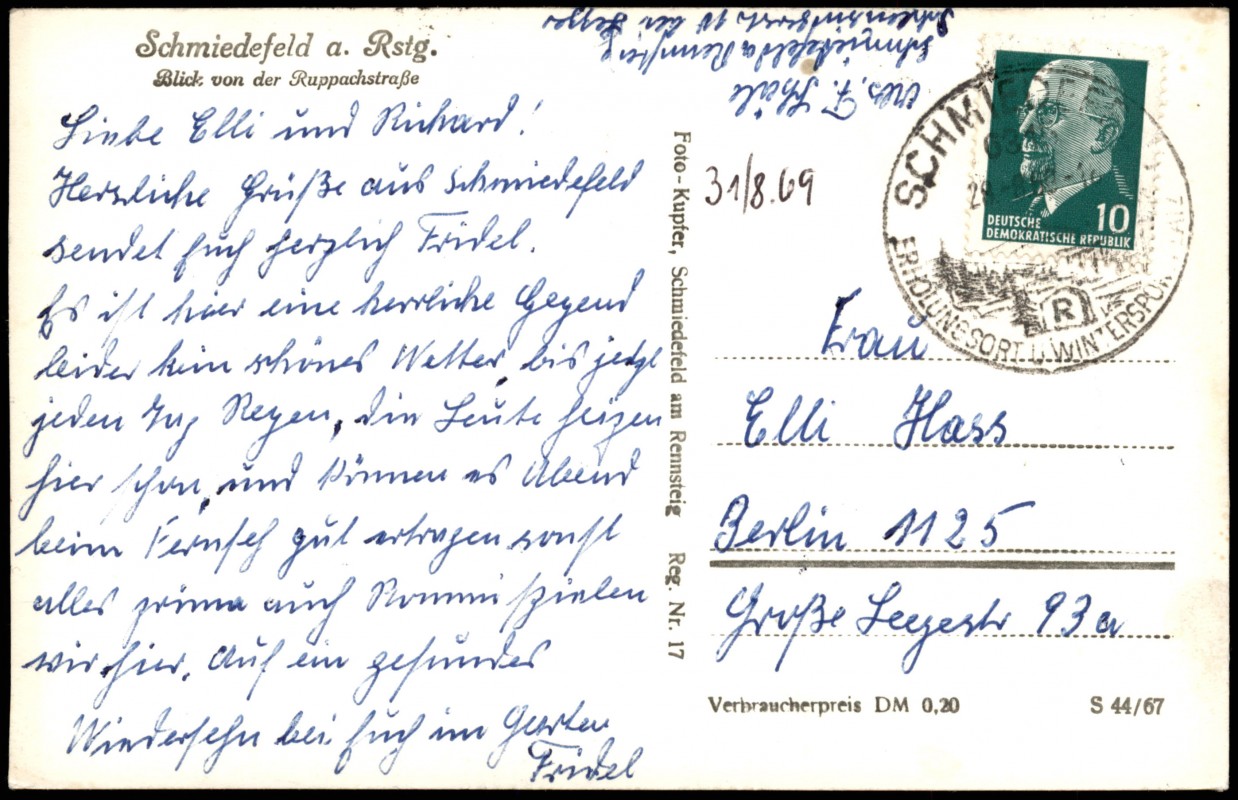 Schmiedefeld a. Rstg.
Blick von der Ruppachstraße
Liebe Elli und Richard!
Herzliche Grüße aus Schmiedefeld
sendet Euch herzlich Fridel.
Es ist hier eine herrliche Gegend
leider kein schönes Wetter, bis jetzt
jeden Tag Regen, die Leute heizen
hier schon, und können es Abend
beim Fernseh gut ertragen, sonst
alles prima auch Rommi spielen
wir hier. Auf ein gesundes
Wiedersehn bei Euch im Garten
Fridel
Abs. F.
Schmiedefeld a Rennsteig
10 bei
Foto-Kupfer, Schmiedefeld am Rennsteig Reg. Nr. 17
31/8.69
SCHMIEDEFELD
ERHOLUNGSORT U. WINTERSPORT
R
10
DEUTSCHE
DEMOKRATISCHE REPUBLIK
Frau
Elli Hass
Berlin 1125
Große Leegestr 93a
Verbraucherpreis DM 0,20 S 44/67